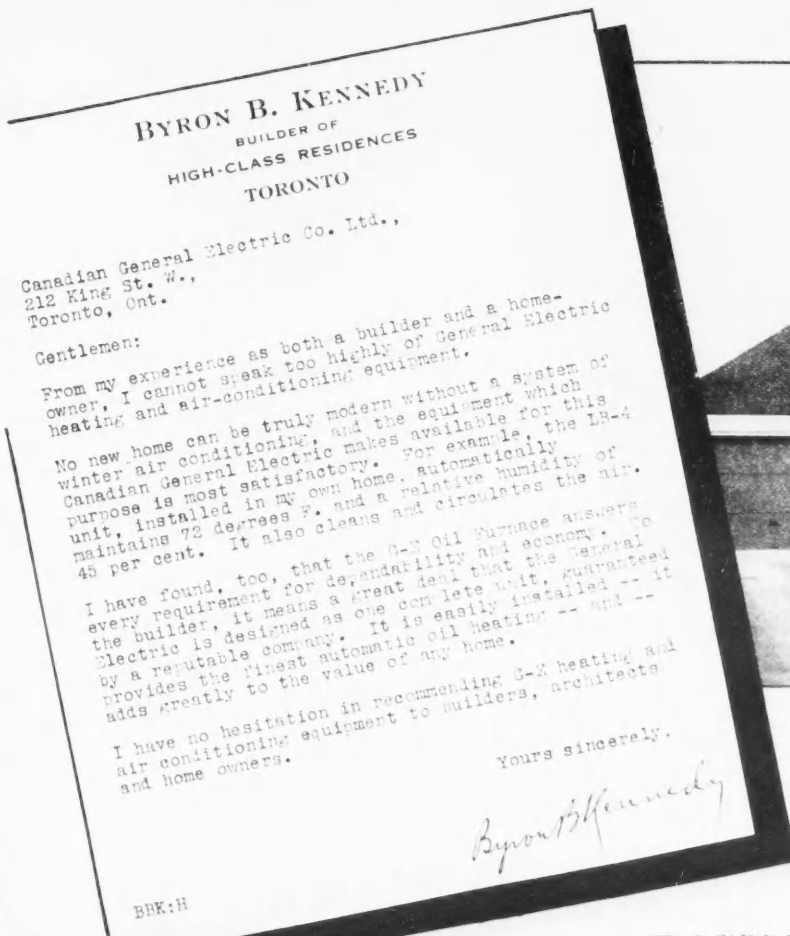 BYRON B. KENNEDY
BUILDER OF
HIGH-CLASS RESIDENCES
TORONTO
Canadian General Electric Co. Ltd.,
212 King St. W.,
Toronto, Ont.
Gentlemen:
From my experience as both a builder and a home-
owner, I cannot speak too highly of General Electric
heating and air-conditioning equipment.
No new home can be truly modern without a system of
winter air conditioning, and the equipment which
Canadian General Electric makes available for this
purpose is most satisfactory. For example, the LB-4
unit, installed in my own home, automatically
maintains 72 degrees F. and a relative humidity of
45 per cent. It also cleans and circulates the air.
I have found, too, that the G-E Oil Furnace answers
every requirement for dependability and economy. To
the builder, it means a great deal that the General
Electric is designed as one complete unit, guaranteed
by a reputable company. It is easily installed -- it
provides the finest automatic oil heating -- and --
adds greatly to the value of any home.
I have no hesitation in recommending G-E heating and
air conditioning equipment to builders, architects
and home owners.
Yours sincerely,
Byron B Kennedy
BBK:H